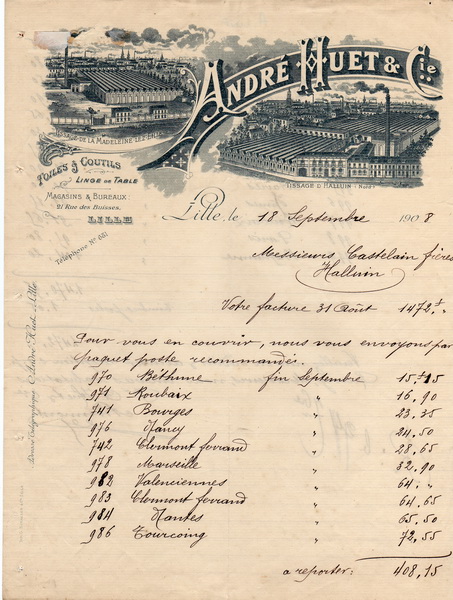 ANDRÉ HUET & Cie
TISSAGE DE LA MADELEINE-LEZ-LILLE
TISSAGE D'HALLUIN (Nord)
TOILES & COUTILS
LINGE DE TABLE
MAGASINS & BUREAUX:
21 Rue des Buisses.
LILLE
Téléphone No 681
Lille, le 18 Septembre 1908
Messieurs Castelain frères
Halluin
Votre facture 31 Août 1472 "
Pour vous en couvrir, nous vous envoyons par
paquet poste recommandés.
970 Béthune fin Septembre 15
971 Roubaix " 16,90
741 Bourges " 23.35
976 Nancy " 24,50
742 Clermont ferrand " 28,65
978 Marseille " 32,90
982 Valenciennes " 64 "
983 Clermont ferrand " 64,65
984 Nantes " 65.50
986 Tourcoing " 72,55
a reporter: 408,15